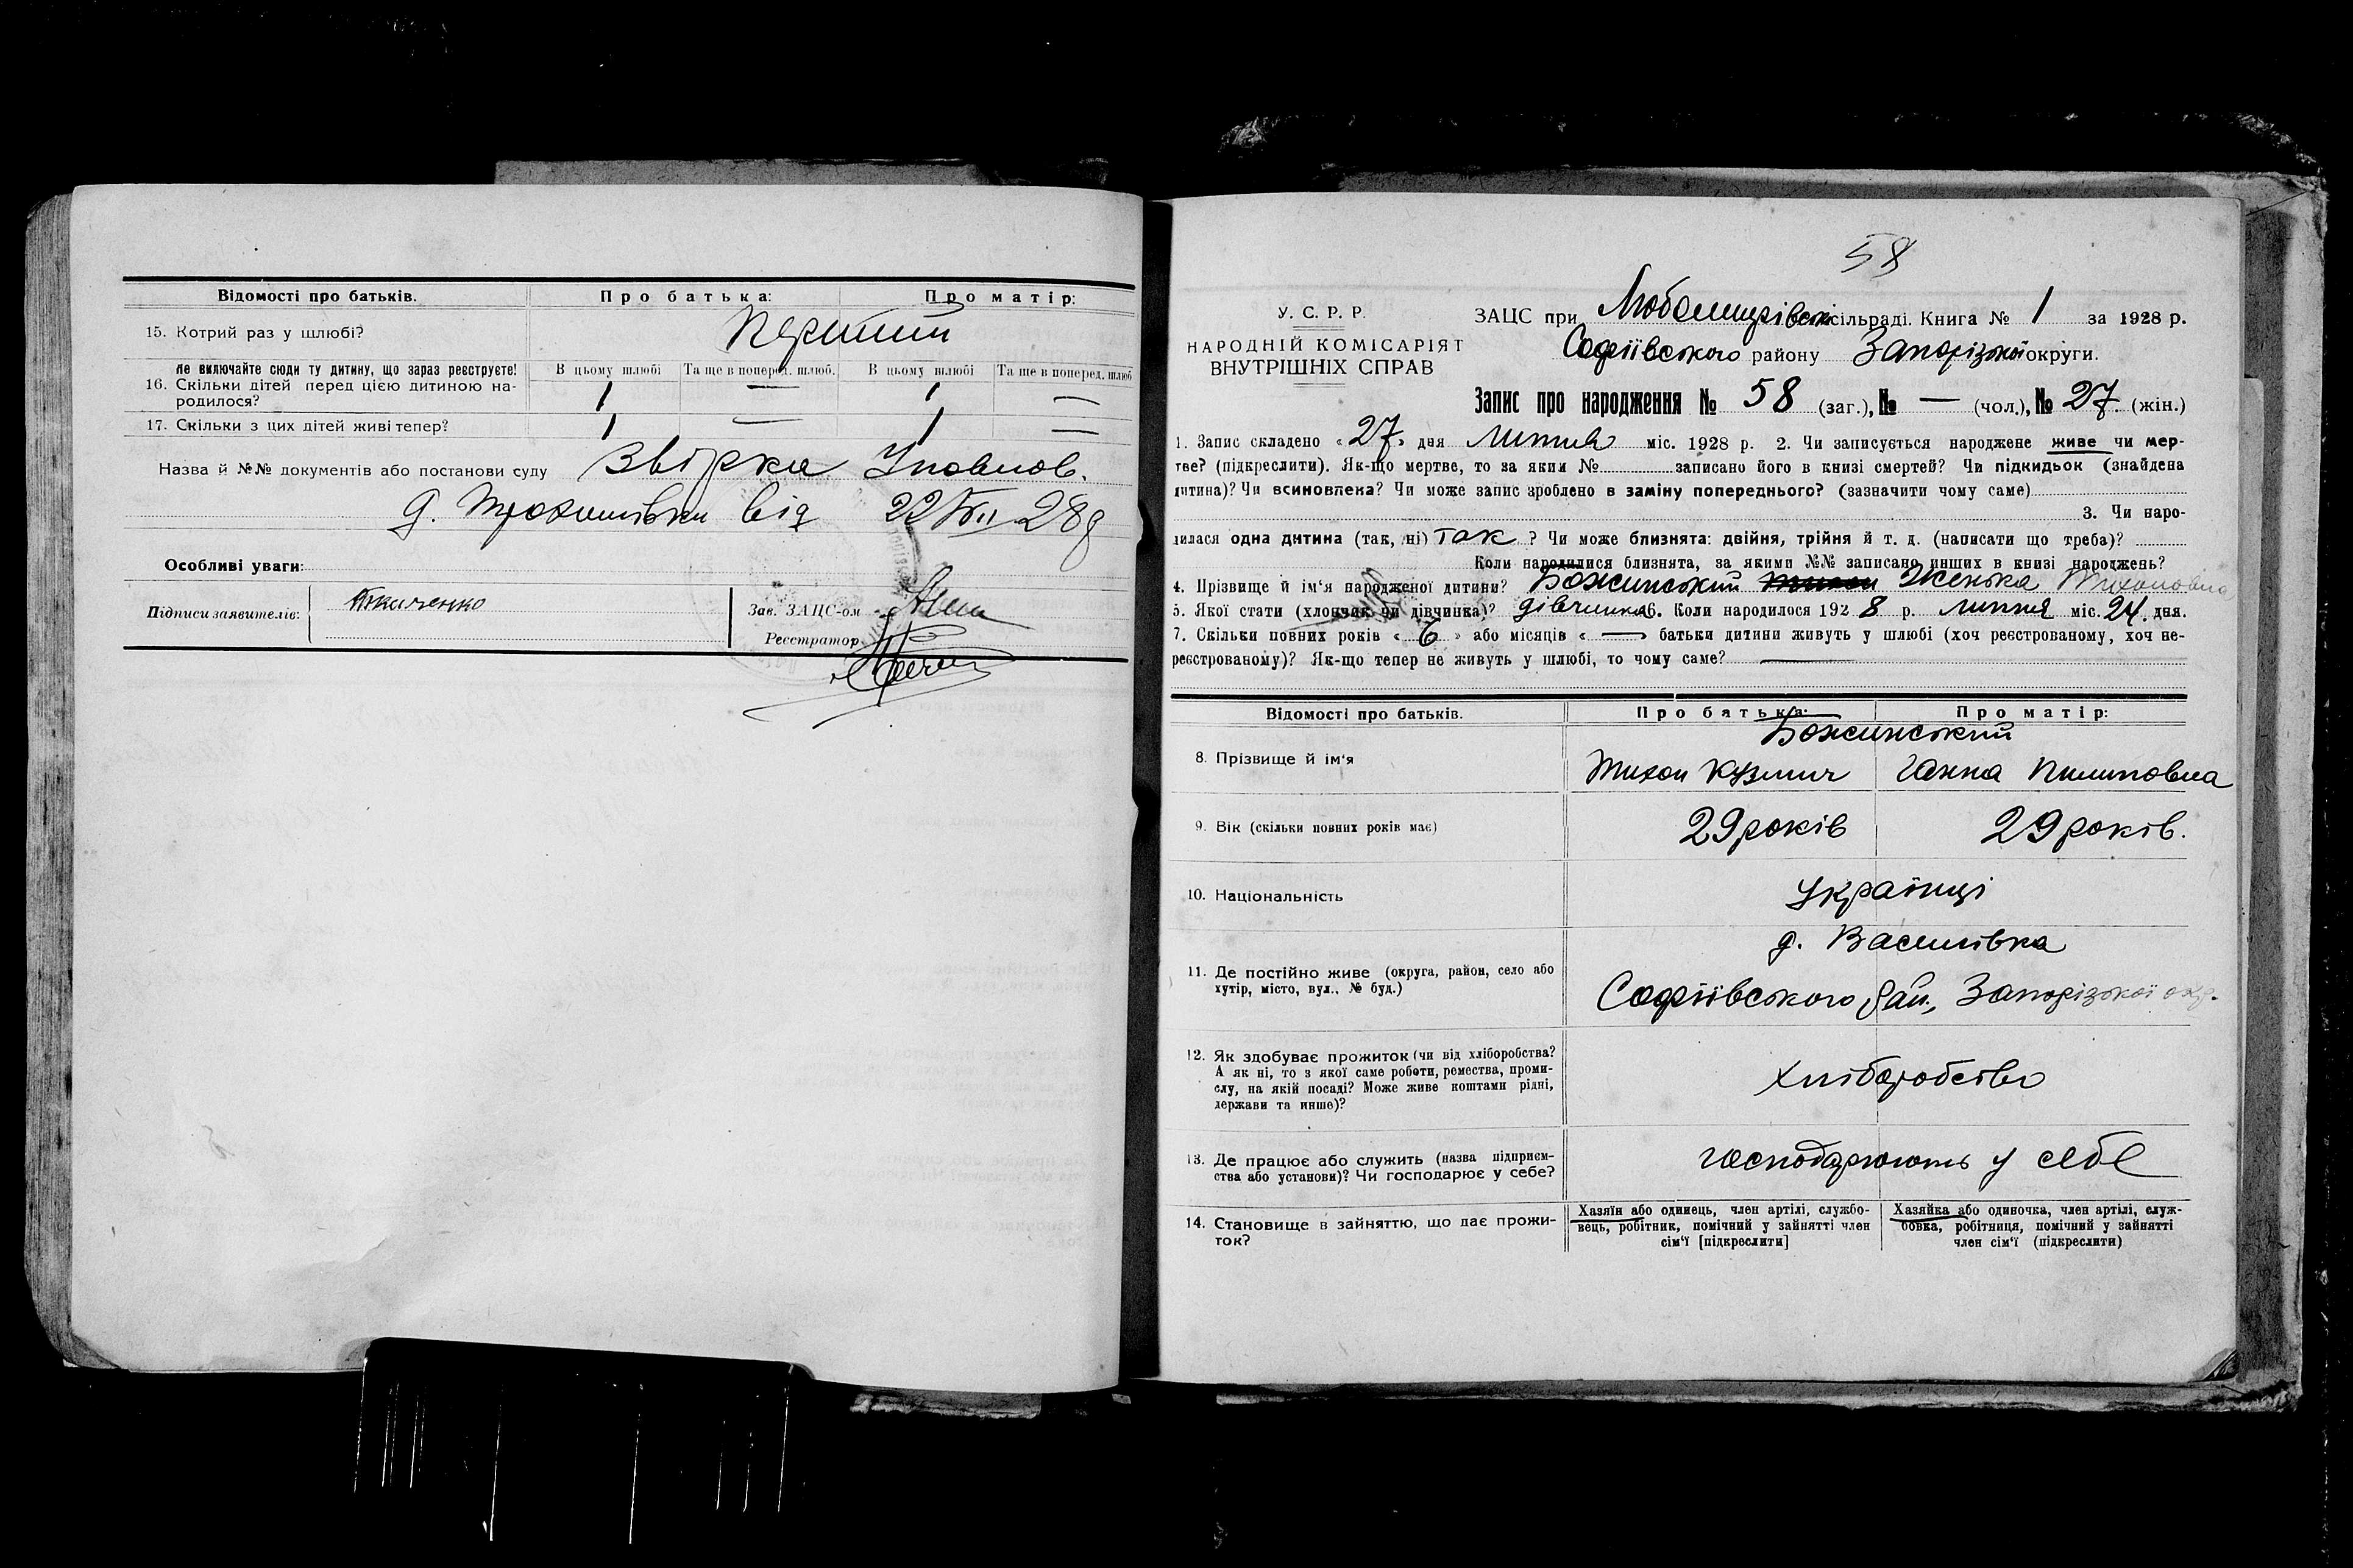 Відомості про батьків. Про батька: Про матір:
15. Котрий раз у шлюбі? Перший
Не включайте сюди ту дитину, що зараз реєструєте! В цьому шлюбі Та ще в поперед. шлюб. В цьому шлюбі Та ще в поперед. шлюб
16. Скільки дітей перед цією дитиною на-
родилося? 1 — 1 —
17. Скільки з цих дітей живі тепер? 1 — 1 —
Назва й №№ документів або постанови суду Звірка Уповнов.
д. Трохимівки від 22/VII 28 р
Особливі уваги:
Підписи заявителів: Ткаченко Зав. ЗАЦС-ом
Реєстратор
58
У. С. Р. Р.
НАРОДНІЙ КОМІСАРІЯТ
ВНУТРІШНІХ СПРАВ
ЗАЦС при Любомирівській сільраді. Книга № 1 за 1928 р.
Софіївського району Запорізької округи.
Запис про народження № 58 (заг.), № — (чол.), № 27. (жін.)
1. Запис складено «27» дня Липня міс. 1928 р. 2. Чи записується народжене живе чи мер-
тве? (підкреслити). Як-що мертве, то за яким № записано його в книзі смертей? Чи підкидьок (знайдена
дитина)? Чи всиновлена? Чи може запис зроблено в заміну попереднього? (зазначити чому саме)
3. Чи наро-
дилася одна дитина (так, ні) Так ? Чи може близнята: двійня, трійня й т. д. (написати що треба)?
Коли народилися близнята, за якими №№ записано инших в книзі народжень?
4. Прізвище й ім'я народженої дитини? Божинський Женька Тихоновна
5. Якої стати (хлопчик чи дівчинка)? дівчинка 6. Коли народилося 1928 р. липня міс. 24. дня.
7. Скільки повних років « 6 » або місяців « — » батьки дитини живуть у шлюбі (хоч реєстрованому, хоч не-
реєстрованому)? Як-що тепер не живуть у шлюбі, то чому саме? —
Відомості про батьків. Про батька: Про матір:
Божинський
8. Прізвище й ім'я Тихон Кузьмич Ганна Пилиповна
9. Вік (скільки повних років має) 29 років 29 років.
10. Національність Українці
д. Василівка
11. Де постійно живе (округа, район, село або
хутір, місто, вул., № буд.) Софіївського рай., Запорізької окр.
12. Як здобуває прожиток (чи від хліборобства?
А як ні, то з якої саме роботи, ремества, проми-
слу, на якій посаді? Може живе коштами рідні,
держави та инше)? Хліборобство
13. Де працює або служить (назва підприєм-
ства або установи)? Чи господарює у себе? господарюють у себе
14. Становище в зайняттю, що дає прожи-
ток?
Хазяїн або одинець, член артілі, службо-
вець, робітник, помічний у зайнятті член
сім'ї [підкреслити]
Хазяйка або одиночка, член артілі, служ-
бовка, робітниця, помічний у зайнятті
член сім'ї (підкреслити)